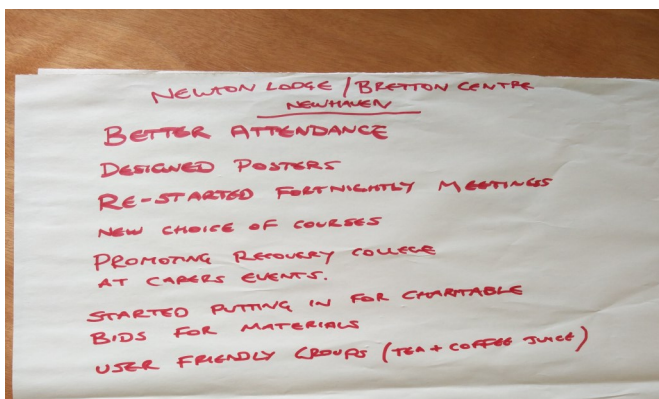 NEWTON LODGE / BRETTON CENTRE
NEWHAVEN
BETTER ATTENDANCE
DESIGNED POSTERS
RE-STARTED FORTNIGHTLY MEETINGS
NEW CHOICE OF COURSES
PROMOTING RECOVERY COLLEGE
AT CARERS EVENTS.
STARTED PUTTING IN FOR CHARITABLE
BIDS FOR MATERIALS
USER FRIENDLY GROUPS (TEA + COFFEE JUICE)